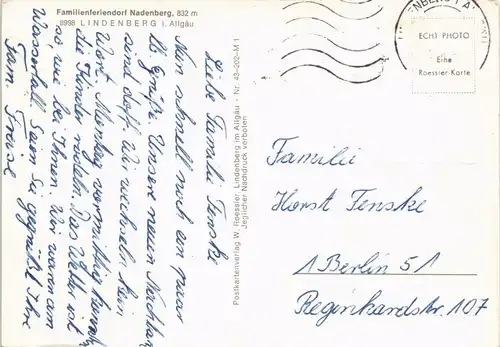 Familienferiendorf Nadenberg, 832 m
8998 LINDENBERG i. Allgäu
Liebe Familie Fenske
Nun schnell noch ein paar
lb. Grüße. Unsere neuen Nachbarn
sind doff. Wir wechseln kein
Wort.
die Kinder rodeln. Das Wetter ist
so, wie bei Ihnen. Wir waren am
Wasserfall. Seien Sie gegrüßt Ihre
Fam. Freise
Postkartenverlag W. Roessler, Lindenberg im Allgäu - Nr. 43-202-M 1
Jeglicher Nachdruck verboten
ECHT PHOTO
Eine
Roessler-Karte
Familie
Horst Fenske
1 Berlin 51
Reginhardstr. 107